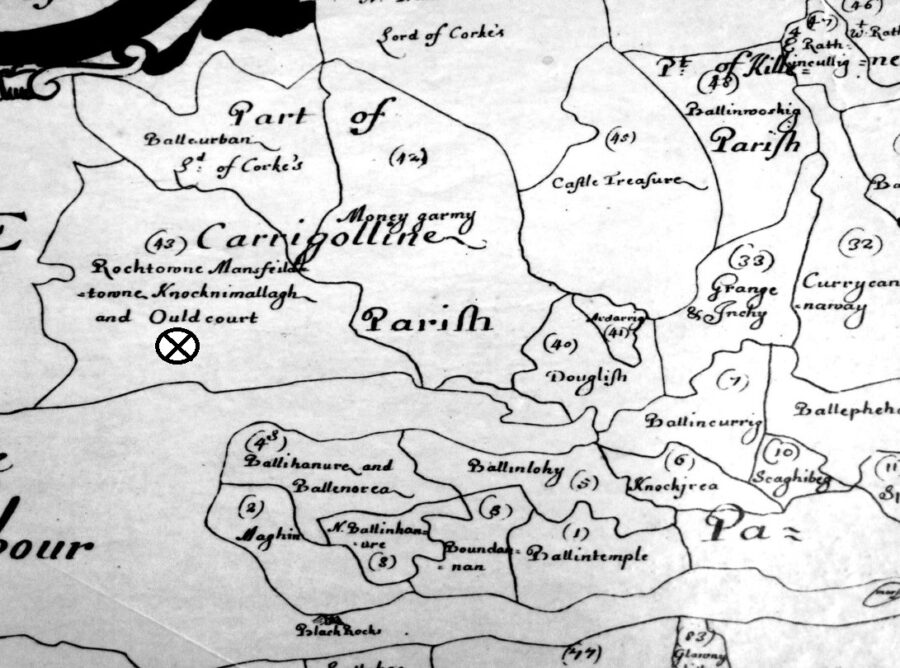 Lord of Corke's
(46)
(47)
Rath=
incullig
Pt. of Kille=
(48)
Ballinwoskig
Parish
Part of
Balleurban
Ld. of Corke's
(42)
(45)
Castle Treasure
Money garmy
(43) Carrigolline
Rochtowne Mansfeild
-towne Knocknimallagh
and Ould court
Parish
(33)
Grange
& Inchy
(32)
Currycan
=naway
Ardarrig
(41)
(40)
Douglish
(7)
Ballincurrig
Ballepheh
E
(4)
Ballihanure and
Ballenorea
Ballinlohy
(5)
(6)
Knockjrea
(10)
Scaghibeg
(11)
(2)
Maghin
N. Ballinhan=
=ure
(3)
(8)
Boundan=
=nan
(1)
Ballintemple
Pa=
bour
Black Rocks
(77)
(83)